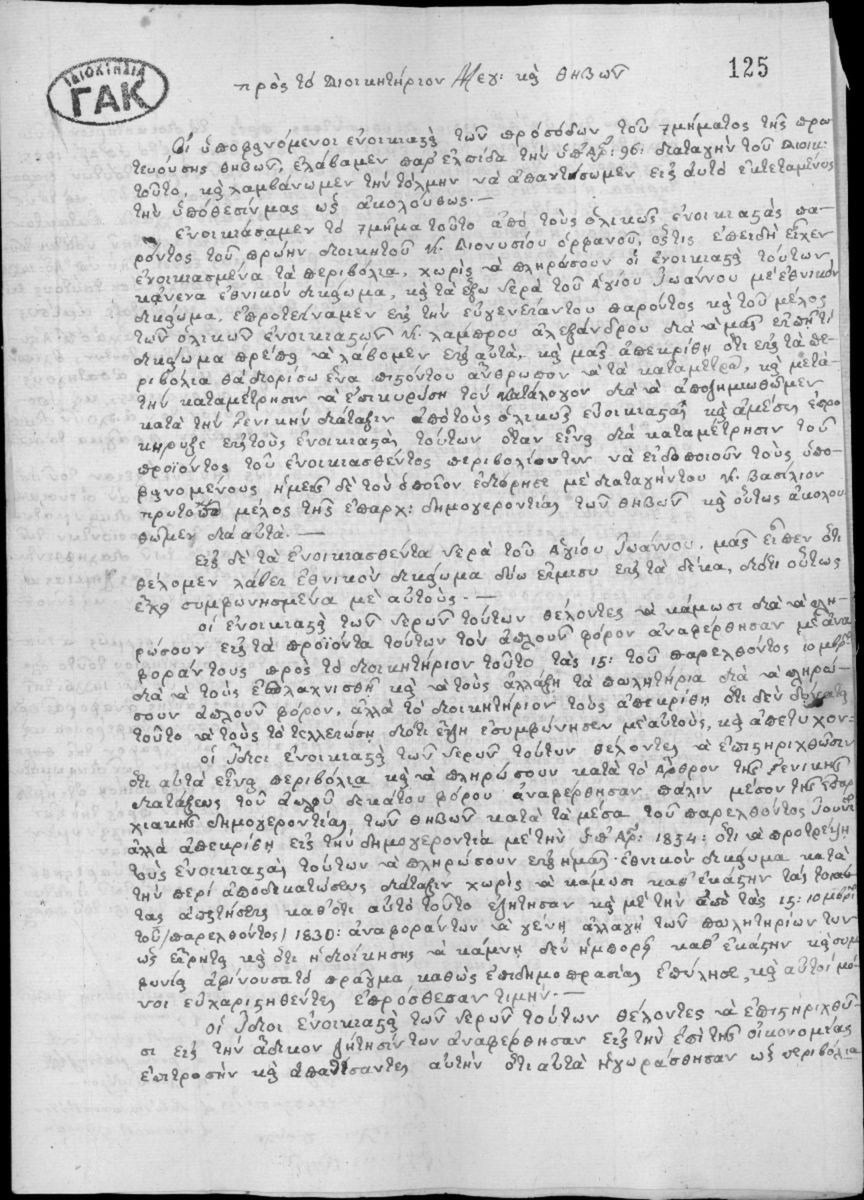 ΙΔΙΟΚΤΗΣΙΑ
ΓΑΚ
125
πρὸς τὸ Διοικητήριον Μεγ: κὴ Θηβῶν
Οἱ ὑποφαινόμενοι ἐνοικιαςαὶ τῶν προσόδων τοῦ τμήματος τῆς πρω
τευούσης Θηβῶν, ἐλάβαμεν παρ' ἐλπίδα τὴν ὑπ' Ἀρ: 96: διαταγὴν τοῦ Διοικ
τούτο, κὴ λαμβάνωμεν τὴν τόλμην νὰ ἀπαντήσωμεν εἰς αὐτὸ ἐκτεταμένως
τὴν ὑπόθεσίν μας ὡς ἀκολούθως.—
ἐνοικιάσαμεν τὸ τμῆμα τοῦτο ἀπὸ τοὺς ὁλικοὺς ἐνοικιαςὰς πα-
ρόντος τοῦ πρώην διοικητοῦ κ. Διονυσίου ὀρφανοῦ, ὅςτις ἐπειδὴ εἶχεν
ἐνοικιασμένα τὰ περιβόλια, χωρὶς νὰ πληρώσουν οἱ ἐνοικιαςαὶ τούτων
κᾀνένα ἐθνικὸν δικαίωμα, κὴ τὰ ἔξω νερὰ τοῦ Ἁγίου Ἰωάννου μὲ ἐθνικὸν
δικαίωμα, ἐπροτείναμεν εἰς τὴν εὐγενείαν του παρόντος κὴ τοῦ μέλος
τῶν ὁλικῶν ἐνοικιαςῶν κ. Λάμπρου ἀλεξάνδρου διὰ νὰ μᾶς εἰπῇ τί
δικαίωμα πρέπει νὰ λάβομεν εἰς αὐτὰ, κὴ μᾶς ἀπεκρίθη ὅτι εἰς τὰ πε-
ριβόλια θὰ διορίσω ἕνα πιςόν του ἄνθρωπον νὰ τὰ καταμετρᾷ, κὴ μετὰ
τὴν καταμέτρησιν νὰ ἐπικυρώσῃ τὸν κατάλογον διὰ νὰ ἀποζημιωθῶμεν
κατὰ τὴν Γενικὴν διάταξιν ἀπὸ τοὺς ὁλικοὺς ἐνοικιαςὰς κὴ ἀμέσως ἐπρο
κήρυξε εἰς τοὺς ἐνοικιαςὰς τούτων ὅταν εἶναι διὰ καταμέτρησιν τοῦ
προϊόντος τοῦ ἐνοικιασθέντος περιβολίου των νὰ εἰδοποιοῦν τοὺς ὑπο-
φαινομένους ἡμεῖς δὲ τὸν ὁποῖον ἐδιόρησε μὲ διαταγήν του κ. Βασίλιον
μέλος τῆς ἐπαρχ: δημογεροντίας τῶν Θηβῶν κὴ οὕτως ἀκολου
θῶμεν διὰ αὐτά.—
Εἰς δὲ τὰ ἐνοικιασθέντα νερὰ τοῦ Ἁγίου Ἰωάννου, μᾶς εἶπεν ὅτι
θέλομεν λάβει ἐθνικὸν δικαίωμα δύω ἥμισυ εἰς τὰ δέκα, διότι οὕτως
ἔχει συμφωνησμένα μὲ αὐτούς.—
οἱ ἐνοικιαςαὶ τῶν νερῶν τούτων θέλοντες νὰ κάμωσι διὰ νὰ πλη-
ρώσουν εἰς τὰ προϊόντα τούτων τὸν ἁπλοῦν φόρον ἀναφέρθησαν μὲ ἀνα
φοράν τους πρὸς τὸ διοικητήριον τοῦτο τὰς 15: τοῦ παρελθόντος 10μβρ:
διὰ νὰ τοὺς εὐσπλαχνισθῇ κὴ νὰ τοὺς ἀλλάξῃ τὰ πωλητήρια διὰ νὰ πληρώ-
σουν ἁπλοῦν φόρον, ἀλλὰ τὸ διοικητήριον τοὺς ἀπεκρίθη ὅτι δὲν δύναται
τοῦτο νὰ τοὺς τὸ τελλειώσῃ διότι ἔτζι ἐσυμφώνησεν μὲ αὐτοὺς, κὴ ἀπέτυχον—
οἱ ἴδιοι ἐνοικιαςαὶ τῶν νερῶν τούτων θέλοντες νὰ ἐπιςηριχθῶσιν
ὅτι αὐτὰ εἶναι περιβόλια κὴ νὰ πληρώσουν κατὰ τὸ Ἄρθρον τῆς Γενικῆς
διατάξεως τοῦ ἁπλοῦ δεκάτου φόρου ἀναφέρθησαν πάλιν μέσον τῆς ἐπαρ
χιακῆς δημογεροντίας τῶν Θηβῶν κατὰ τὰ μέσα τοῦ παρελθόντος Ἰουνίου
ἀλλὰ ἀπεκρίθη εἰς τὴν δημογεροντία μὲ τὴν ὑπ' Ἀρ: 1854: ὅτι νὰ προτρέψῃ
τοὺς ἐνοικιαςὰς τούτων νὰ πληρώσουν εἰς ἡμᾶς ἐθνικὸν δικαίωμα κατὰ
τὴν περὶ ἀποδεκατώσεως διάταξιν χωρὶς νὰ κάμωσι καθ' ἑκάςην τὰς τοιαύ
τας ἀπαιτήσεις καθ' ὅτι αὐτὸ τοῦτο ἐζήτησαν κὴ μὲ τὴν ἀπὸ τὰς 15: 10μβρίου
τοῦ /παρελθόντος/ 1830: ἀναφοράν των νὰ γένῃ ἀλλαγὴ τῶν πωλητηρίων των
ὡς εἴρηται κὴ ὅτι ἡ διοίκησης νὰ κάμνῃ δὲν ἠμπορεῖ καθ' ἑκάςην κὴ συμ
φωνίας ἀφίνουσα τὸ πρᾶγμα καθὼς ἐπὶ δημοπρασίας ἐπώλησε, κὴ αὐτοὶ μό-
νοι εὐχαριςηθέντες ἐπρόσθεσαν τιμήν.—
οἱ ἴδιοι ἐνοικιαςαὶ τῶν νερῶν τούτων θέλοντες νὰ ἐπιςηριχθῶ-
σι εἰς τὴν ἄδικον ζήτησίν των ἀναφέρθησαν εἰς τὴν ἐπὶ τῆς οἰκονομίας
ἐπιτροπὴν κὴ ἀπατήσαντες αὐτὴν ὅτι αὐτὰ ἠγωράσθησαν ὡς περιβόλια